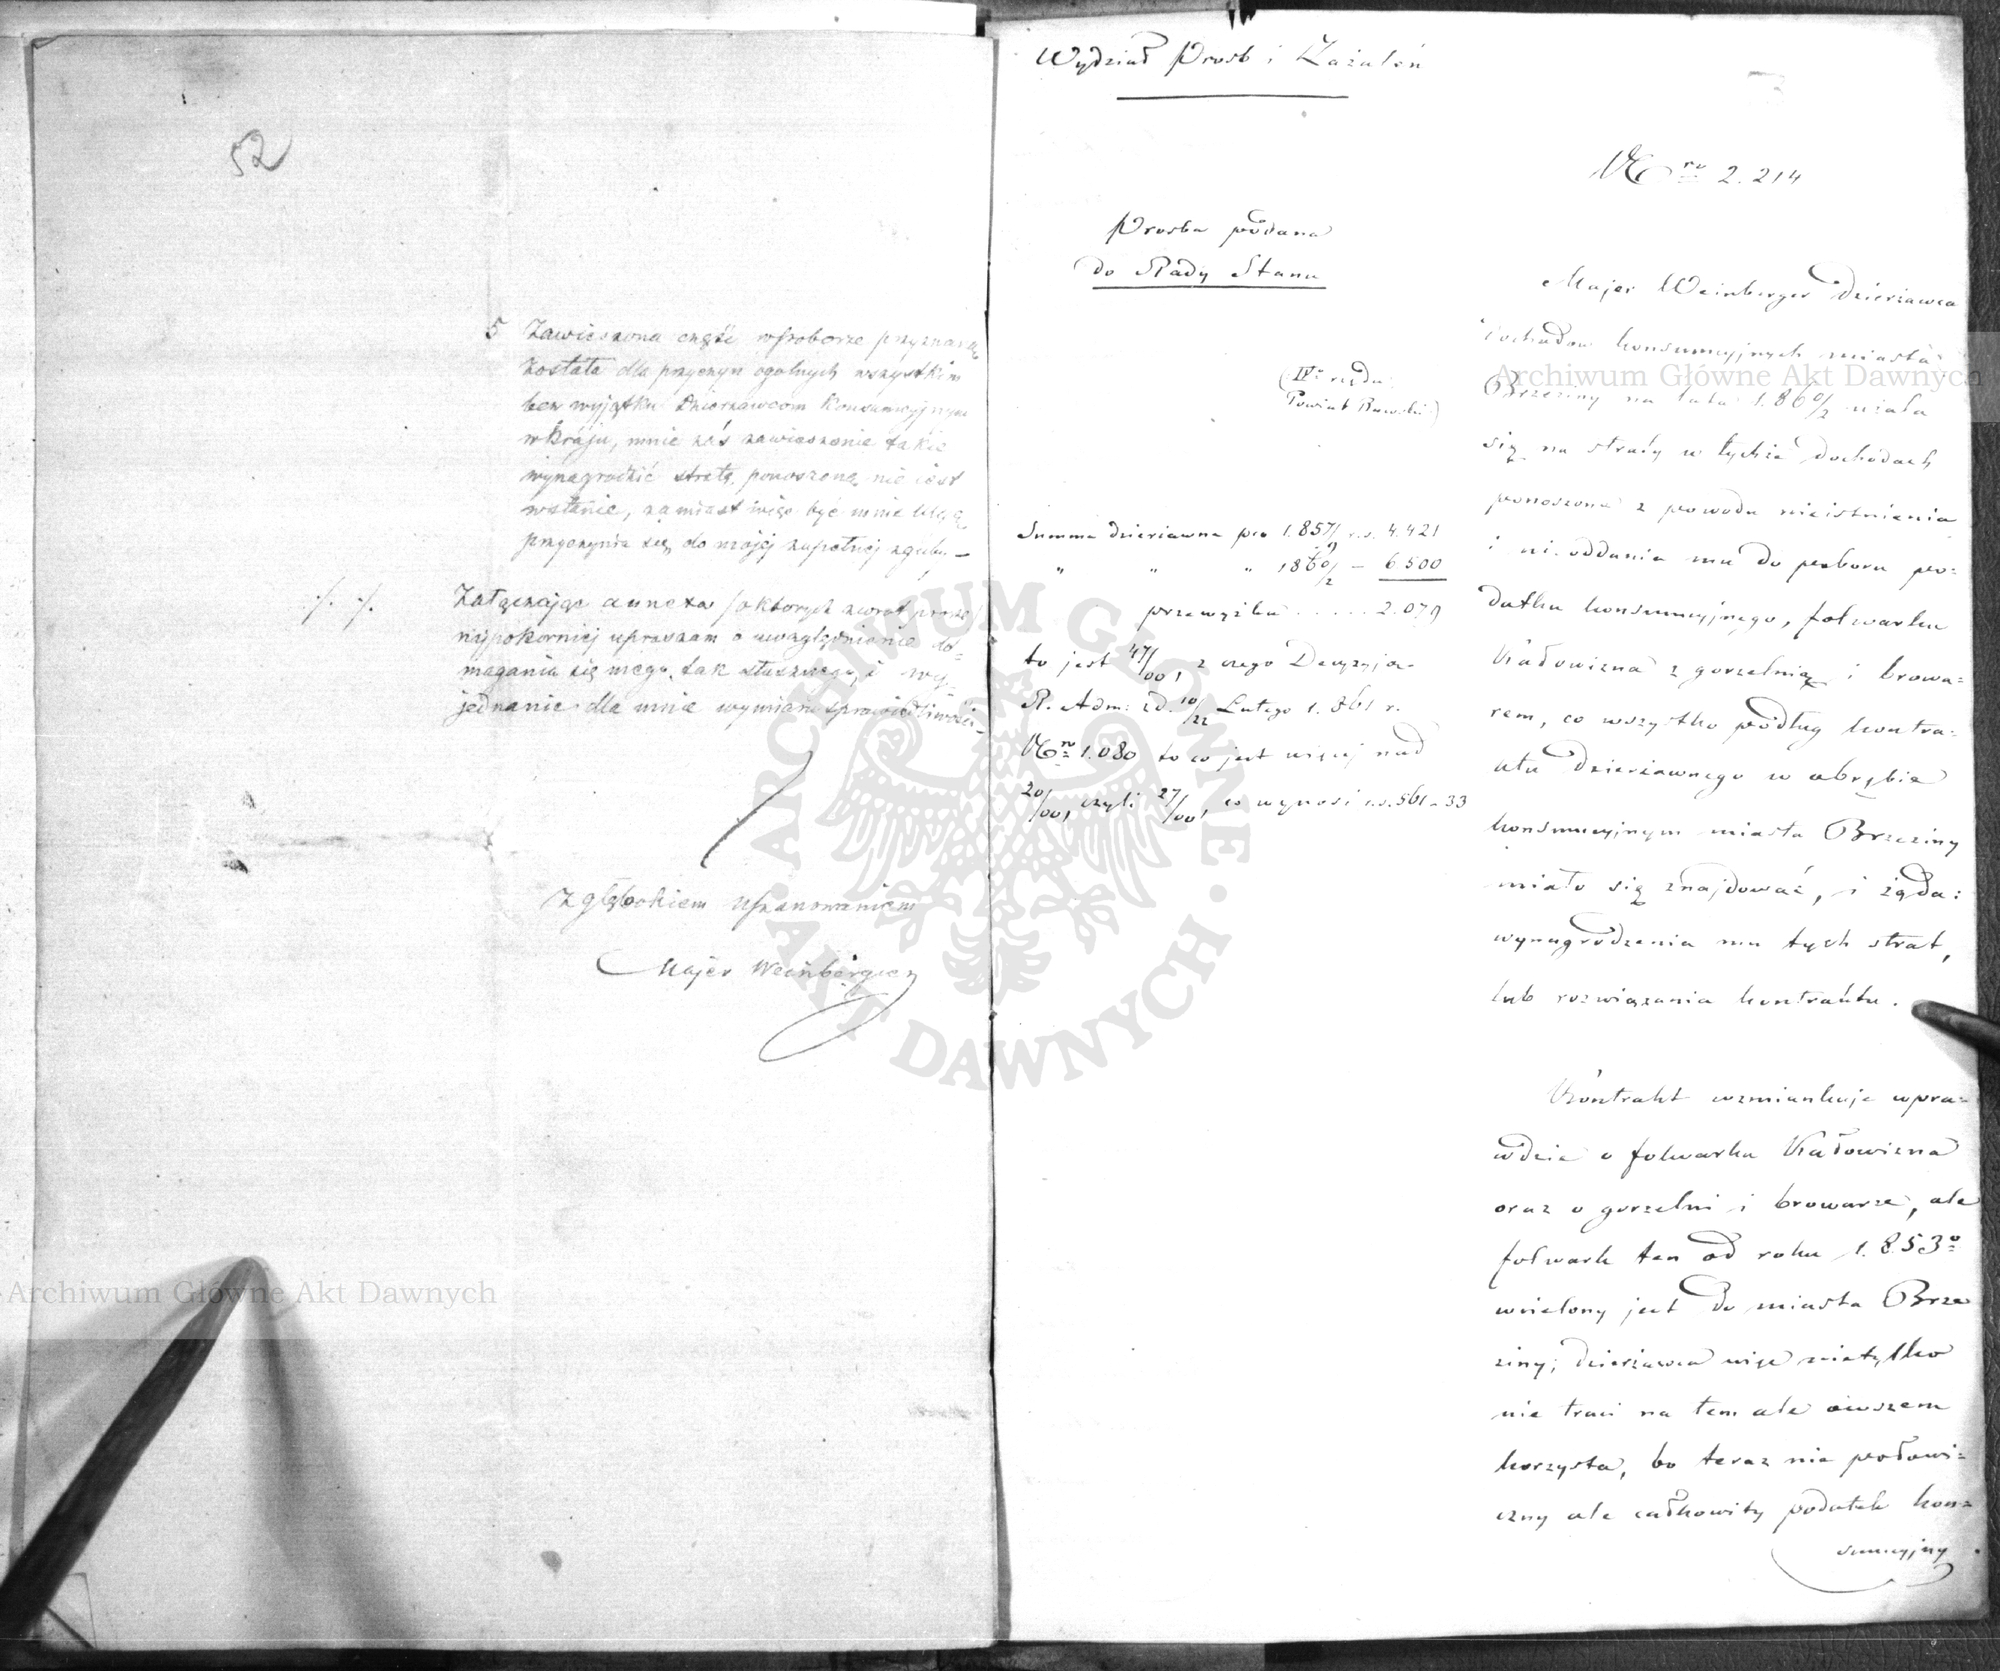 52
5 Zawieszona część w poborze przyznaną
została dla przyczyn ogolnych wszystkim
bez wyjątku Dzierzawcom Konsumcyjnym
w kraju, mnie zaś zawieszenie takie
wynagrodzić stratę ponoszoną nie jest
wstanie, zamiast więc być mnie ulgą
przyczynia się do mojej zupełnej zguby –
Załączając annexa /o których zwrot proszę/
najpokorniej upraszam o uwzględnienie do=
magania się mego, tak słusznego, i wy=
jednanie dla mnie wymiaru sprawiedliwości
Z głębokiem uszanowaniem
Majer Weinberger
Wydział Prosb i Zażaleń
Nro 2.214
Prosba podana
do Rady Stanu
(IVo rzędu
Powiat Rawski)
Summa dzierżawna pro 1.857/9 r.s. 4.421
" " " 1860/2 – 6500
przewyżka ...... 2.079
to jest 47/00, z czego Decyzją
R. Adm: z d. 10/22 Lutego 1.861 r.
Nro 1.080 to co jest więcej nad
20/00, czyli 27/00, co wynosi r.s. 561-33
Majer Weinberger Dzierżawca
dochodow konsumcyjnych miasta
Brzeziny na lata 1.860/2 użala
się na straty w tychże dochodach
ponoszone z powodu nieistnienia
i nieoddania mu do poboru po=
datku konsumcyjnego, folwarku
Kałowizna z gorzelnią i browa=
rem, co wszystko podług kontra=
ktu dzierżawnego w obrębie
konsumcyjnym miasta Brzeziny
miało się znajdować, i żąda:
wynagrodzenia mu tych strat,
lub rozwiązania kontraktu.
Kontrakt wzmiankuje wpra=
wdzie o folwarku Kałowizna
oraz o gorzelni i browarze, ale
folwark ten od roku 1.853o
wcielony jest do miasta Brze
ziny; dzierżawca więc nietylko
nie traci na tem ale owszem
korzysta, bo teraz nie połowi=
czny ale całkowity podatek kon=
sumcyjny
Archiwum Główne Akt Dawnych
Archiwum Główne Akt Dawnych
ARCHIWUM GŁÓWNE AKT DAWNYCH